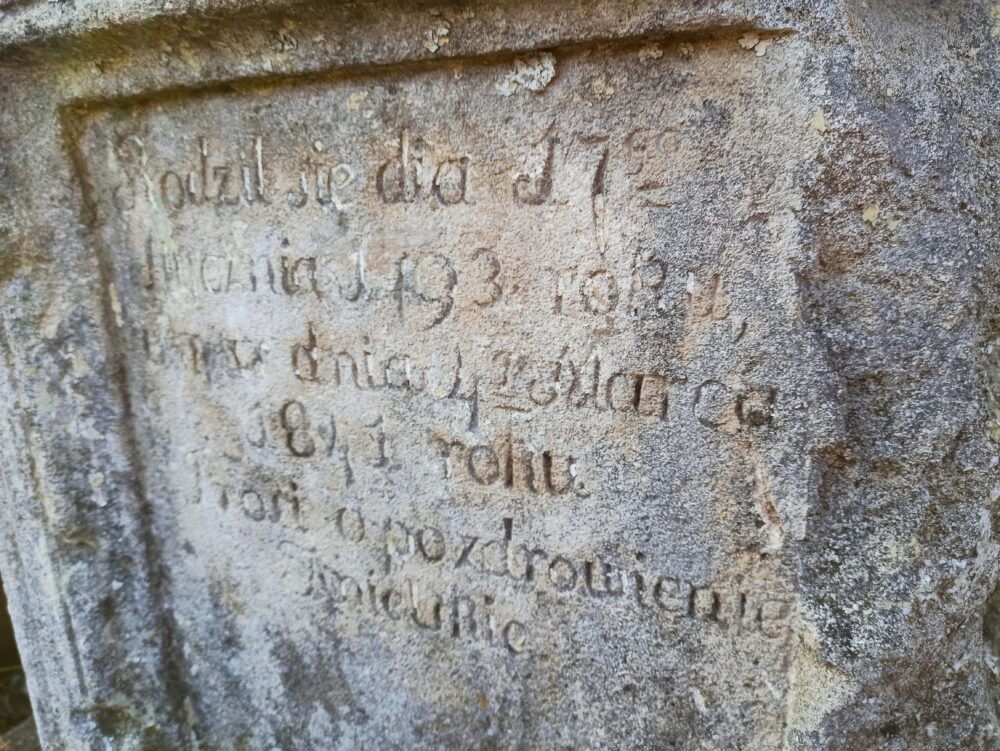 Rodził się dia 17go
1793 roku,
dnia 4 Marca
1841 roku.
Prosi o pozdrowienie
Anielskie